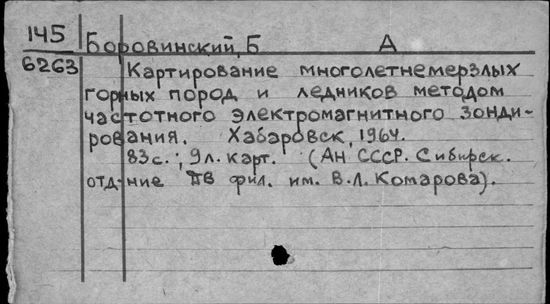 145 Боровинский, Б А
6263 Картирование многолетнемерзлых
горных пород и ледников методом
частотного электромагнитного зонди-
рования. Хабаровск, 1964.
83 с.; 9 л. карт. (Ан СССР. Сибирск.
отд-ние ДВ фил. им. В.Л. Комарова).